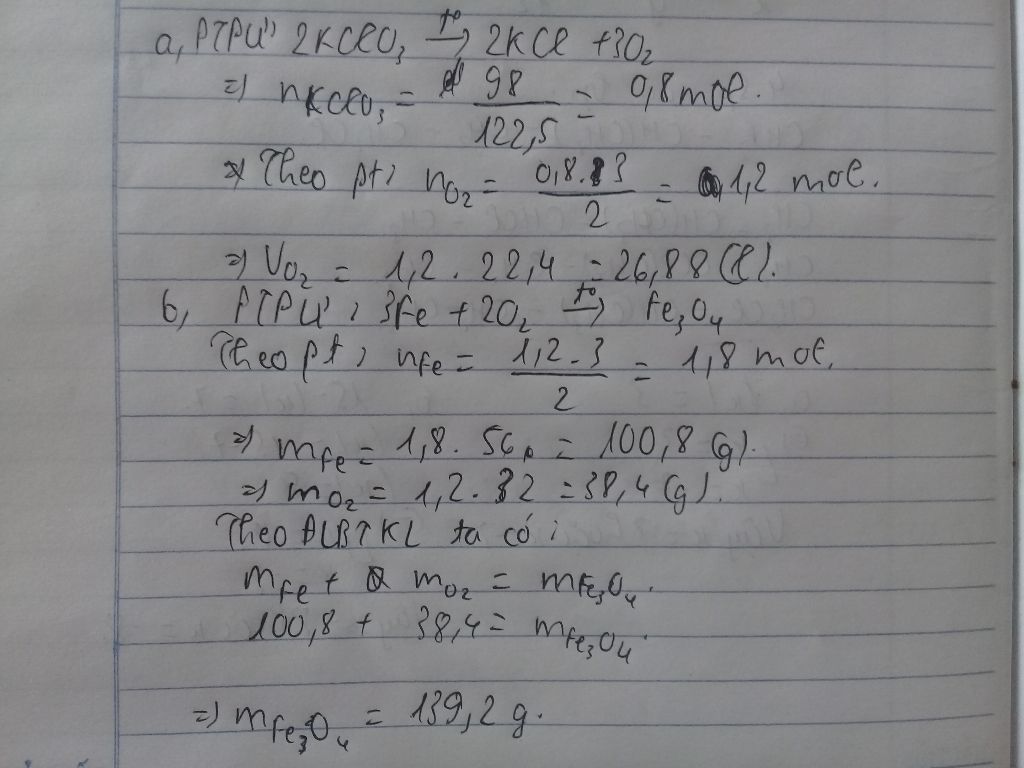 a, PTPƯ: 2KClO₃ →t° 2KCl + 3O₂
=) nKClO₃ = 98/122,5 = 0,8 mol.
=> Theo pt: nO₂ = 0,8.3/2 = 1,2 mol.
=) VO₂ = 1,2 . 22,4 = 26,88 (l).
b, PTPƯ: 3Fe + 2O₂ →t° Fe₃O₄
Theo pt: nFe = 1,2.3/2 = 1,8 mol.
=) mFe = 1,8 . 56 = 100,8 (g).
=) mO₂ = 1,2 . 32 = 38,4 (g).
Theo ĐLBTKL ta có:
mFe + mO₂ = mFe₃O₄.
100,8 + 38,4 = mFe₃O₄.
=) mFe₃O₄ = 139,2 g.